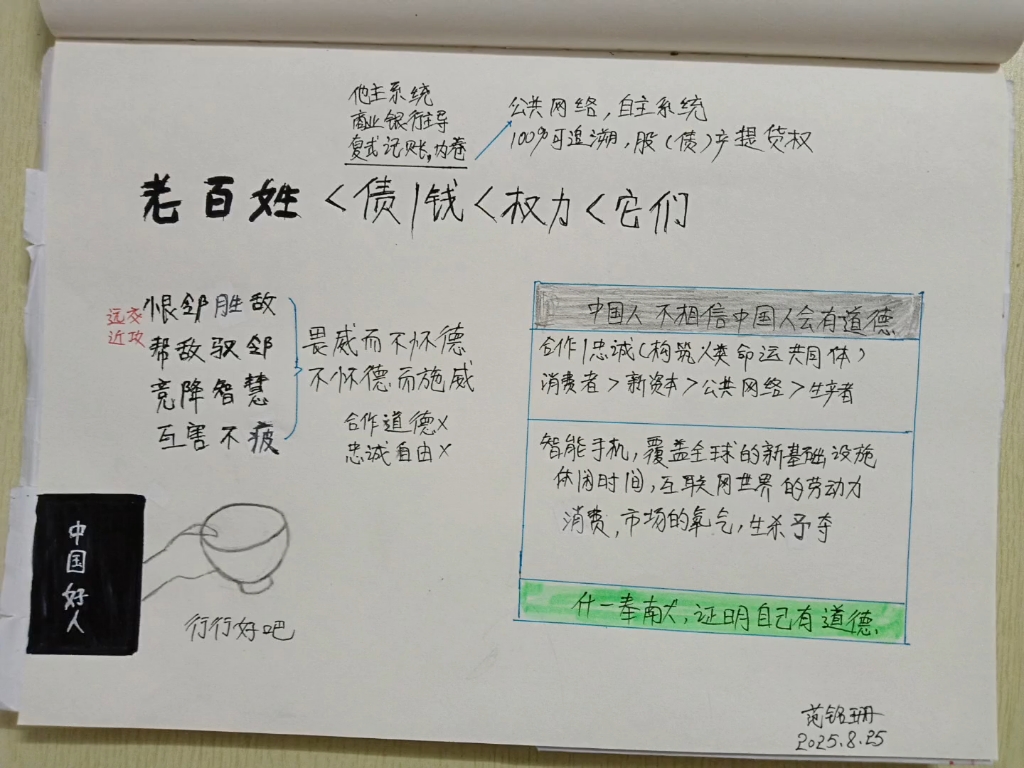 他主系统
商业银行主导
复式记账,内卷
公共网络,自主系统
100%可追溯,股(债)产提货权
老百姓<债/钱<权力<它们
远交
近攻
恨邻胜敌
帮敌驭邻
竞降智慧
互害不疲
畏威而不怀德
不怀德而施威
合作道德×
忠诚自由×
中国人不相信中国人会有道德.
合作/忠诚(构筑人类命运共同体)
消费者>新资本>公共网络>生产者
智能手机,覆盖全球的新基础设施
休闲时间,互联网世界的劳动力
消费,市场的氧气,生杀予夺
什一奉南大,证明自己有道德.
中国好人
行行好吧
范铭珊
2025.8.25